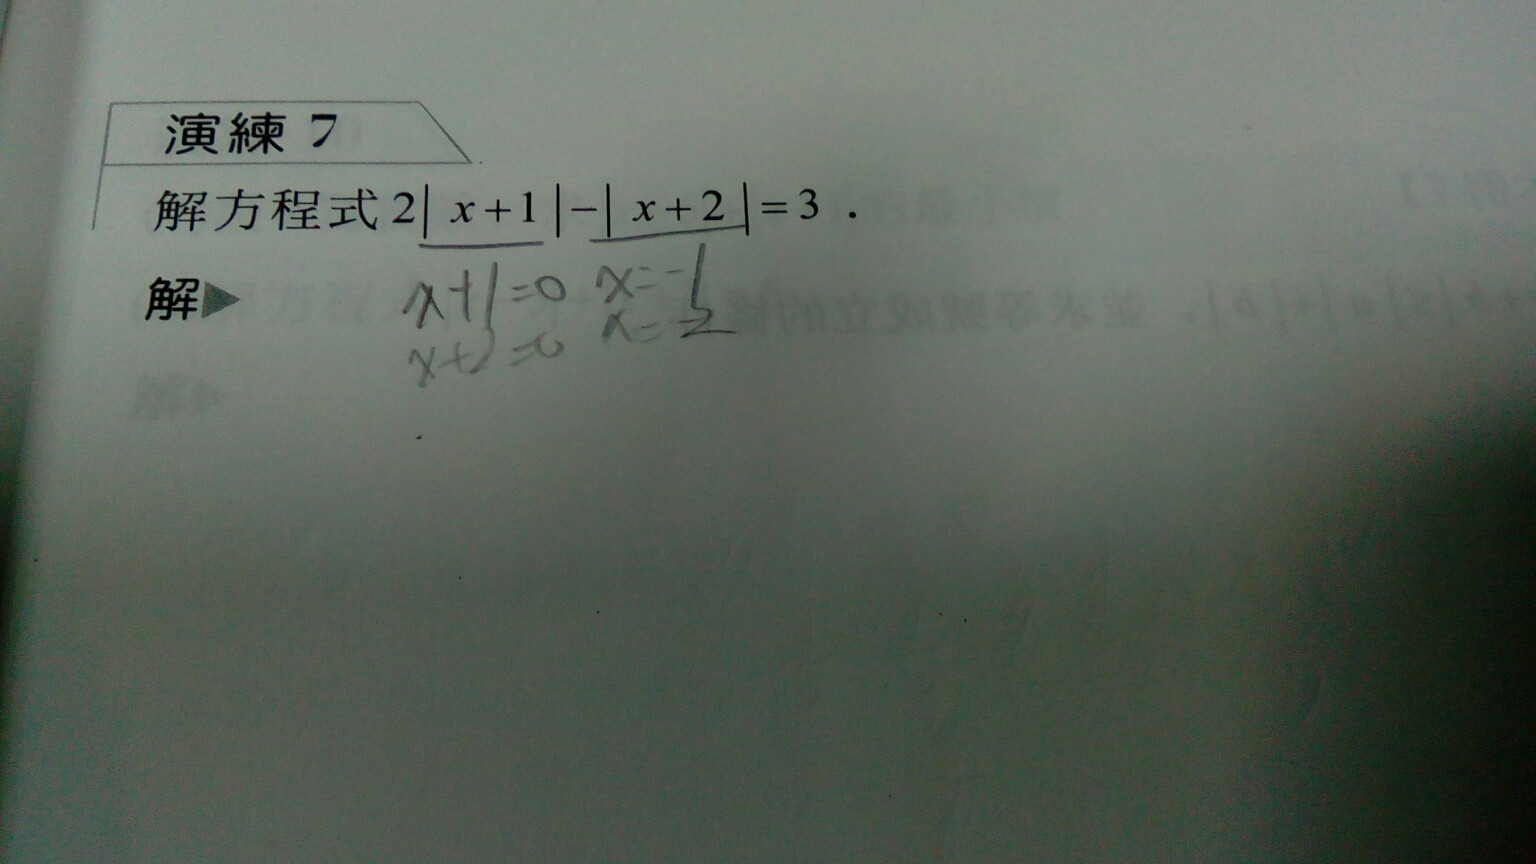 演練 7
解方程式 2| x+1 |−| x+2 |=3 .
解▶
x+1=0 x=-1
x+2=0 x=-2